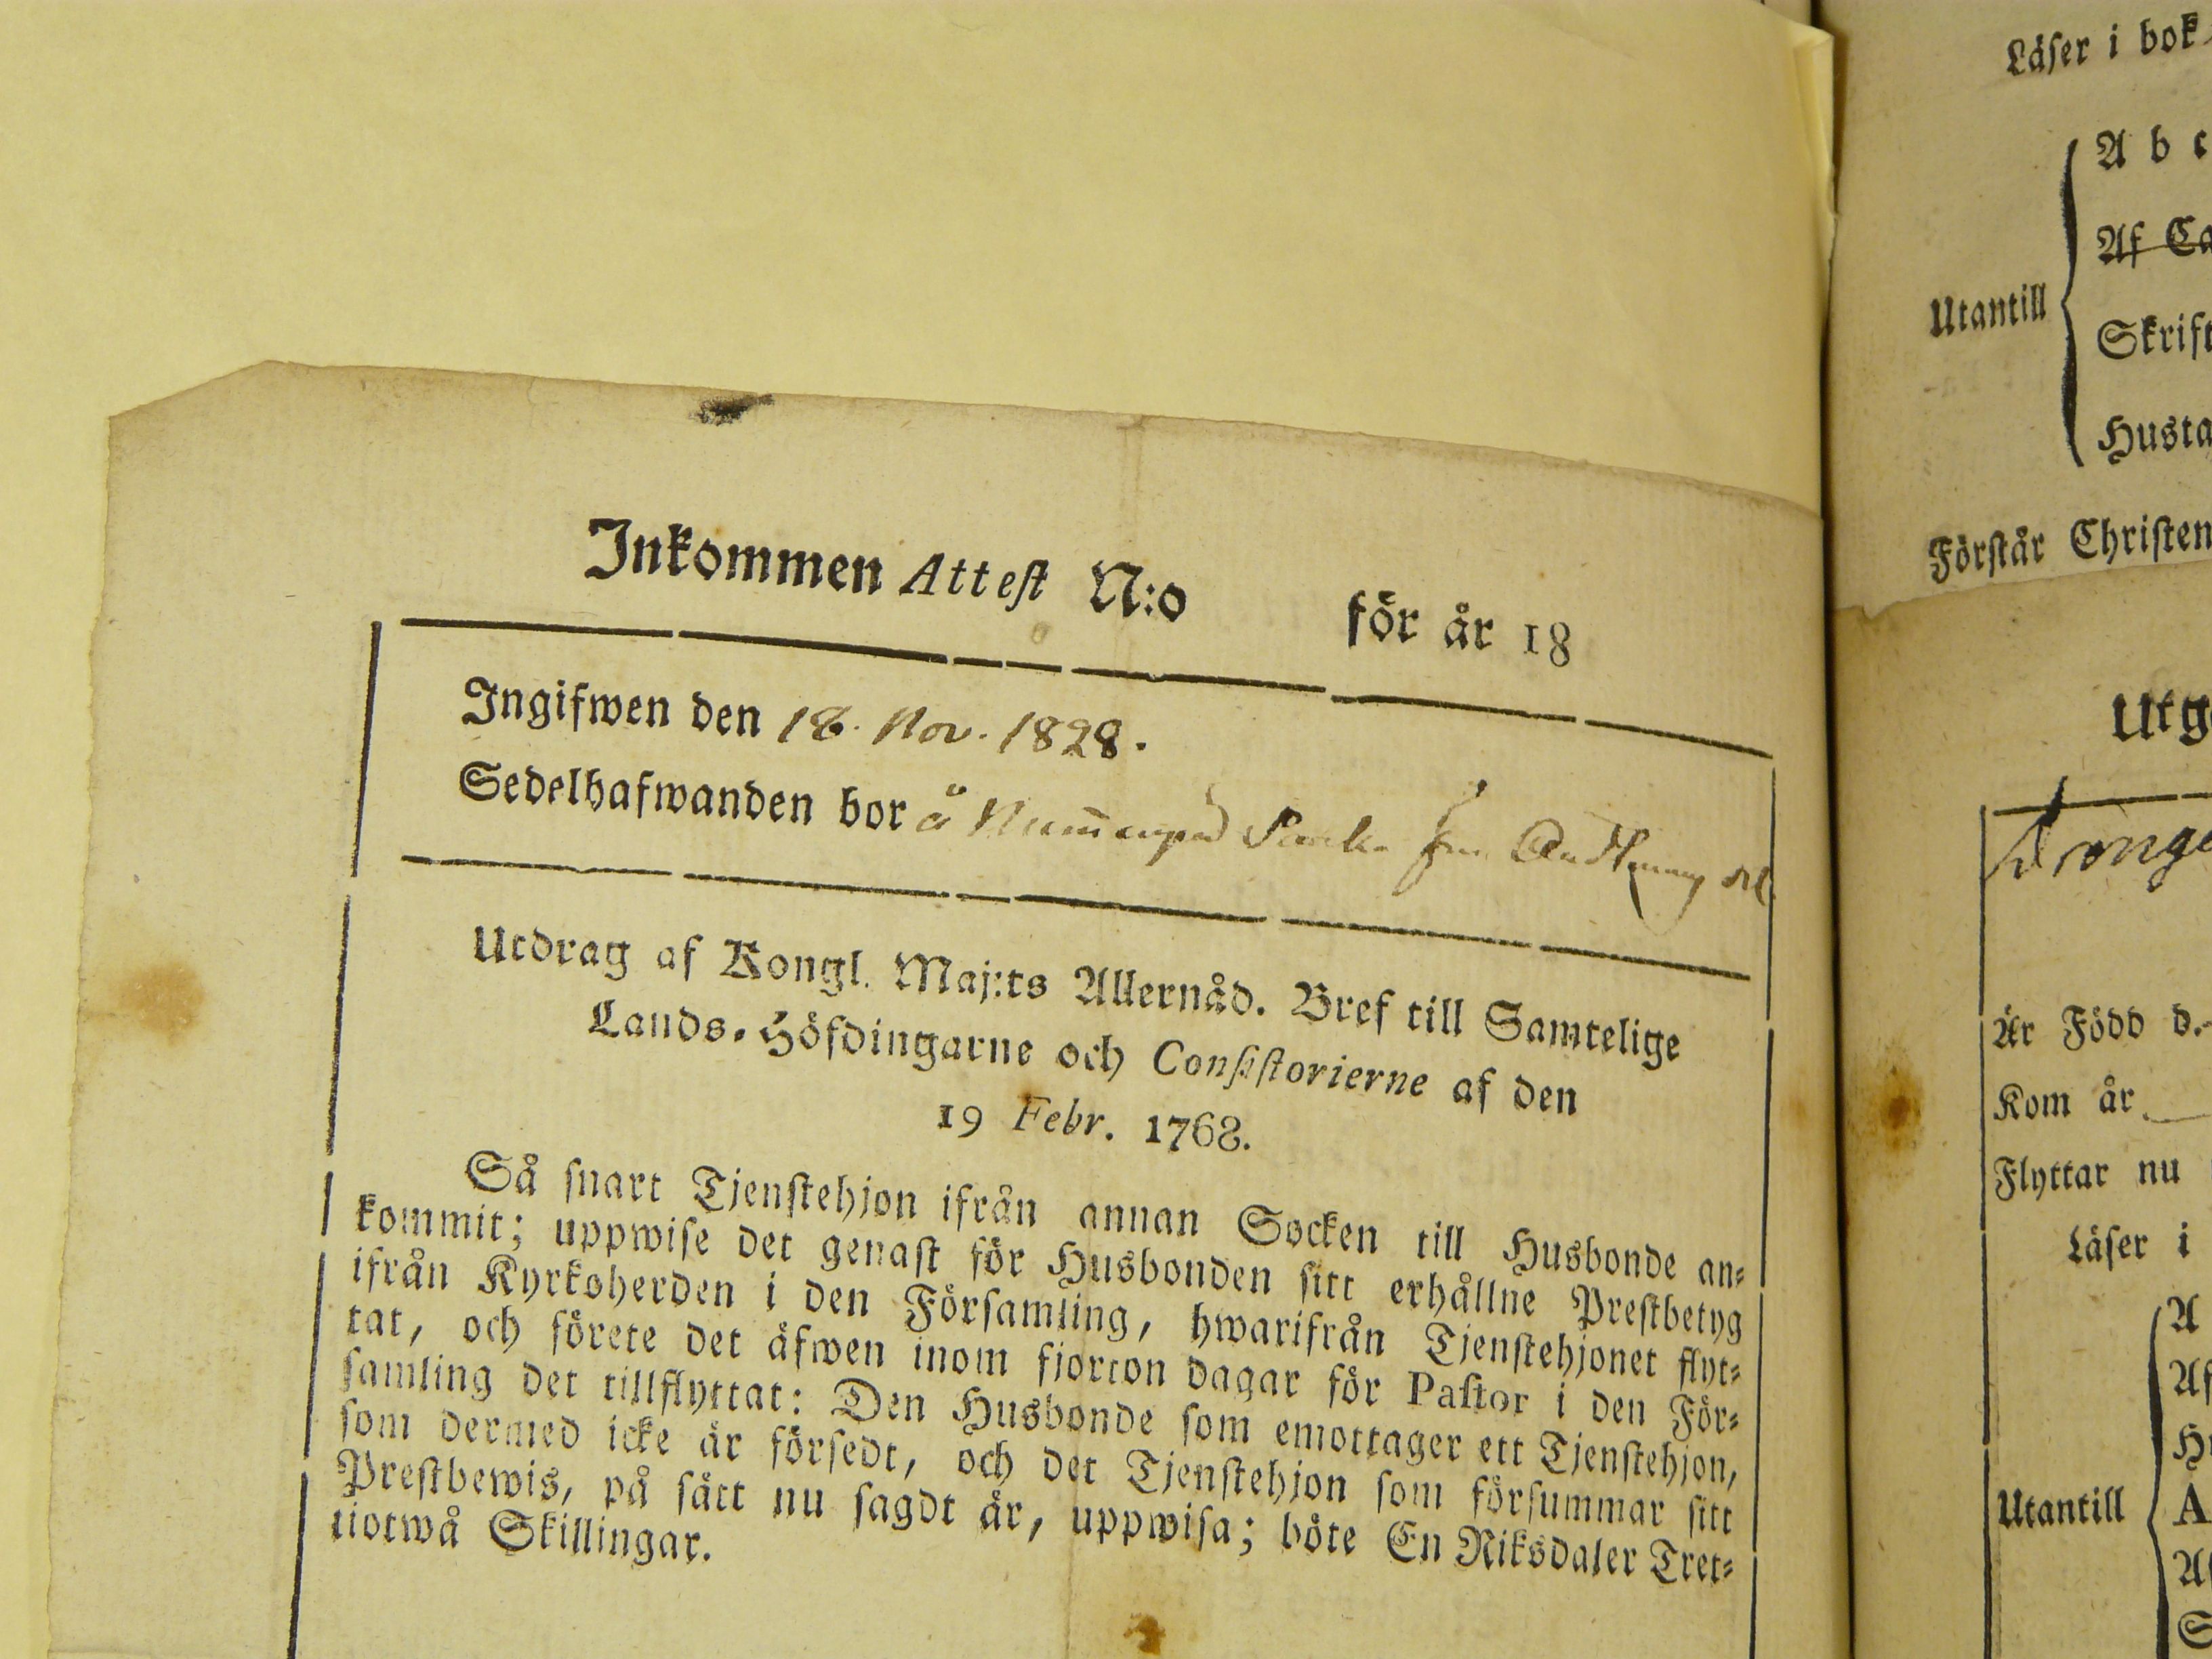 Inkommen Attest N:o för år 18
Ingifwen den 18. Nov. 1828.
Sedelhafwanden bor å
Utdrag af Kongl. Maj:ts Allernåd. Bref till Samtelige
Lands-Höfdingarne och Consistorierne af den
19 Febr. 1768.
Så snart Tjenstehjon ifrån annan Socken till Husbonde an-
kommit; uppwise det genast för Husbonden sitt erhållne Prestbetyg
ifrån Kyrkoherden i den Församling, hwarifrån Tjenstehjonet flyt-
tat, och förete det äfwen inom fjorton dagar för Pastor i den För-
samling det tillflyttat: Den Husbonde som emottager ett Tjenstehjon,
som dermed icke är försedt, och det Tjenstehjon som försummar sitt
Prestbewis, på sätt nu sagdt är, uppwisa; böte En Riksdaler Tret-
tiotwå Skillingar.
Läser i bok
Utantill
A b c
Af Ca
Skrift
Husta
Förstår Christen
Utg
Är Född d.
Kom år
Flyttar nu
Läser i
Utantill
A
Af
Hu
A
Af
S